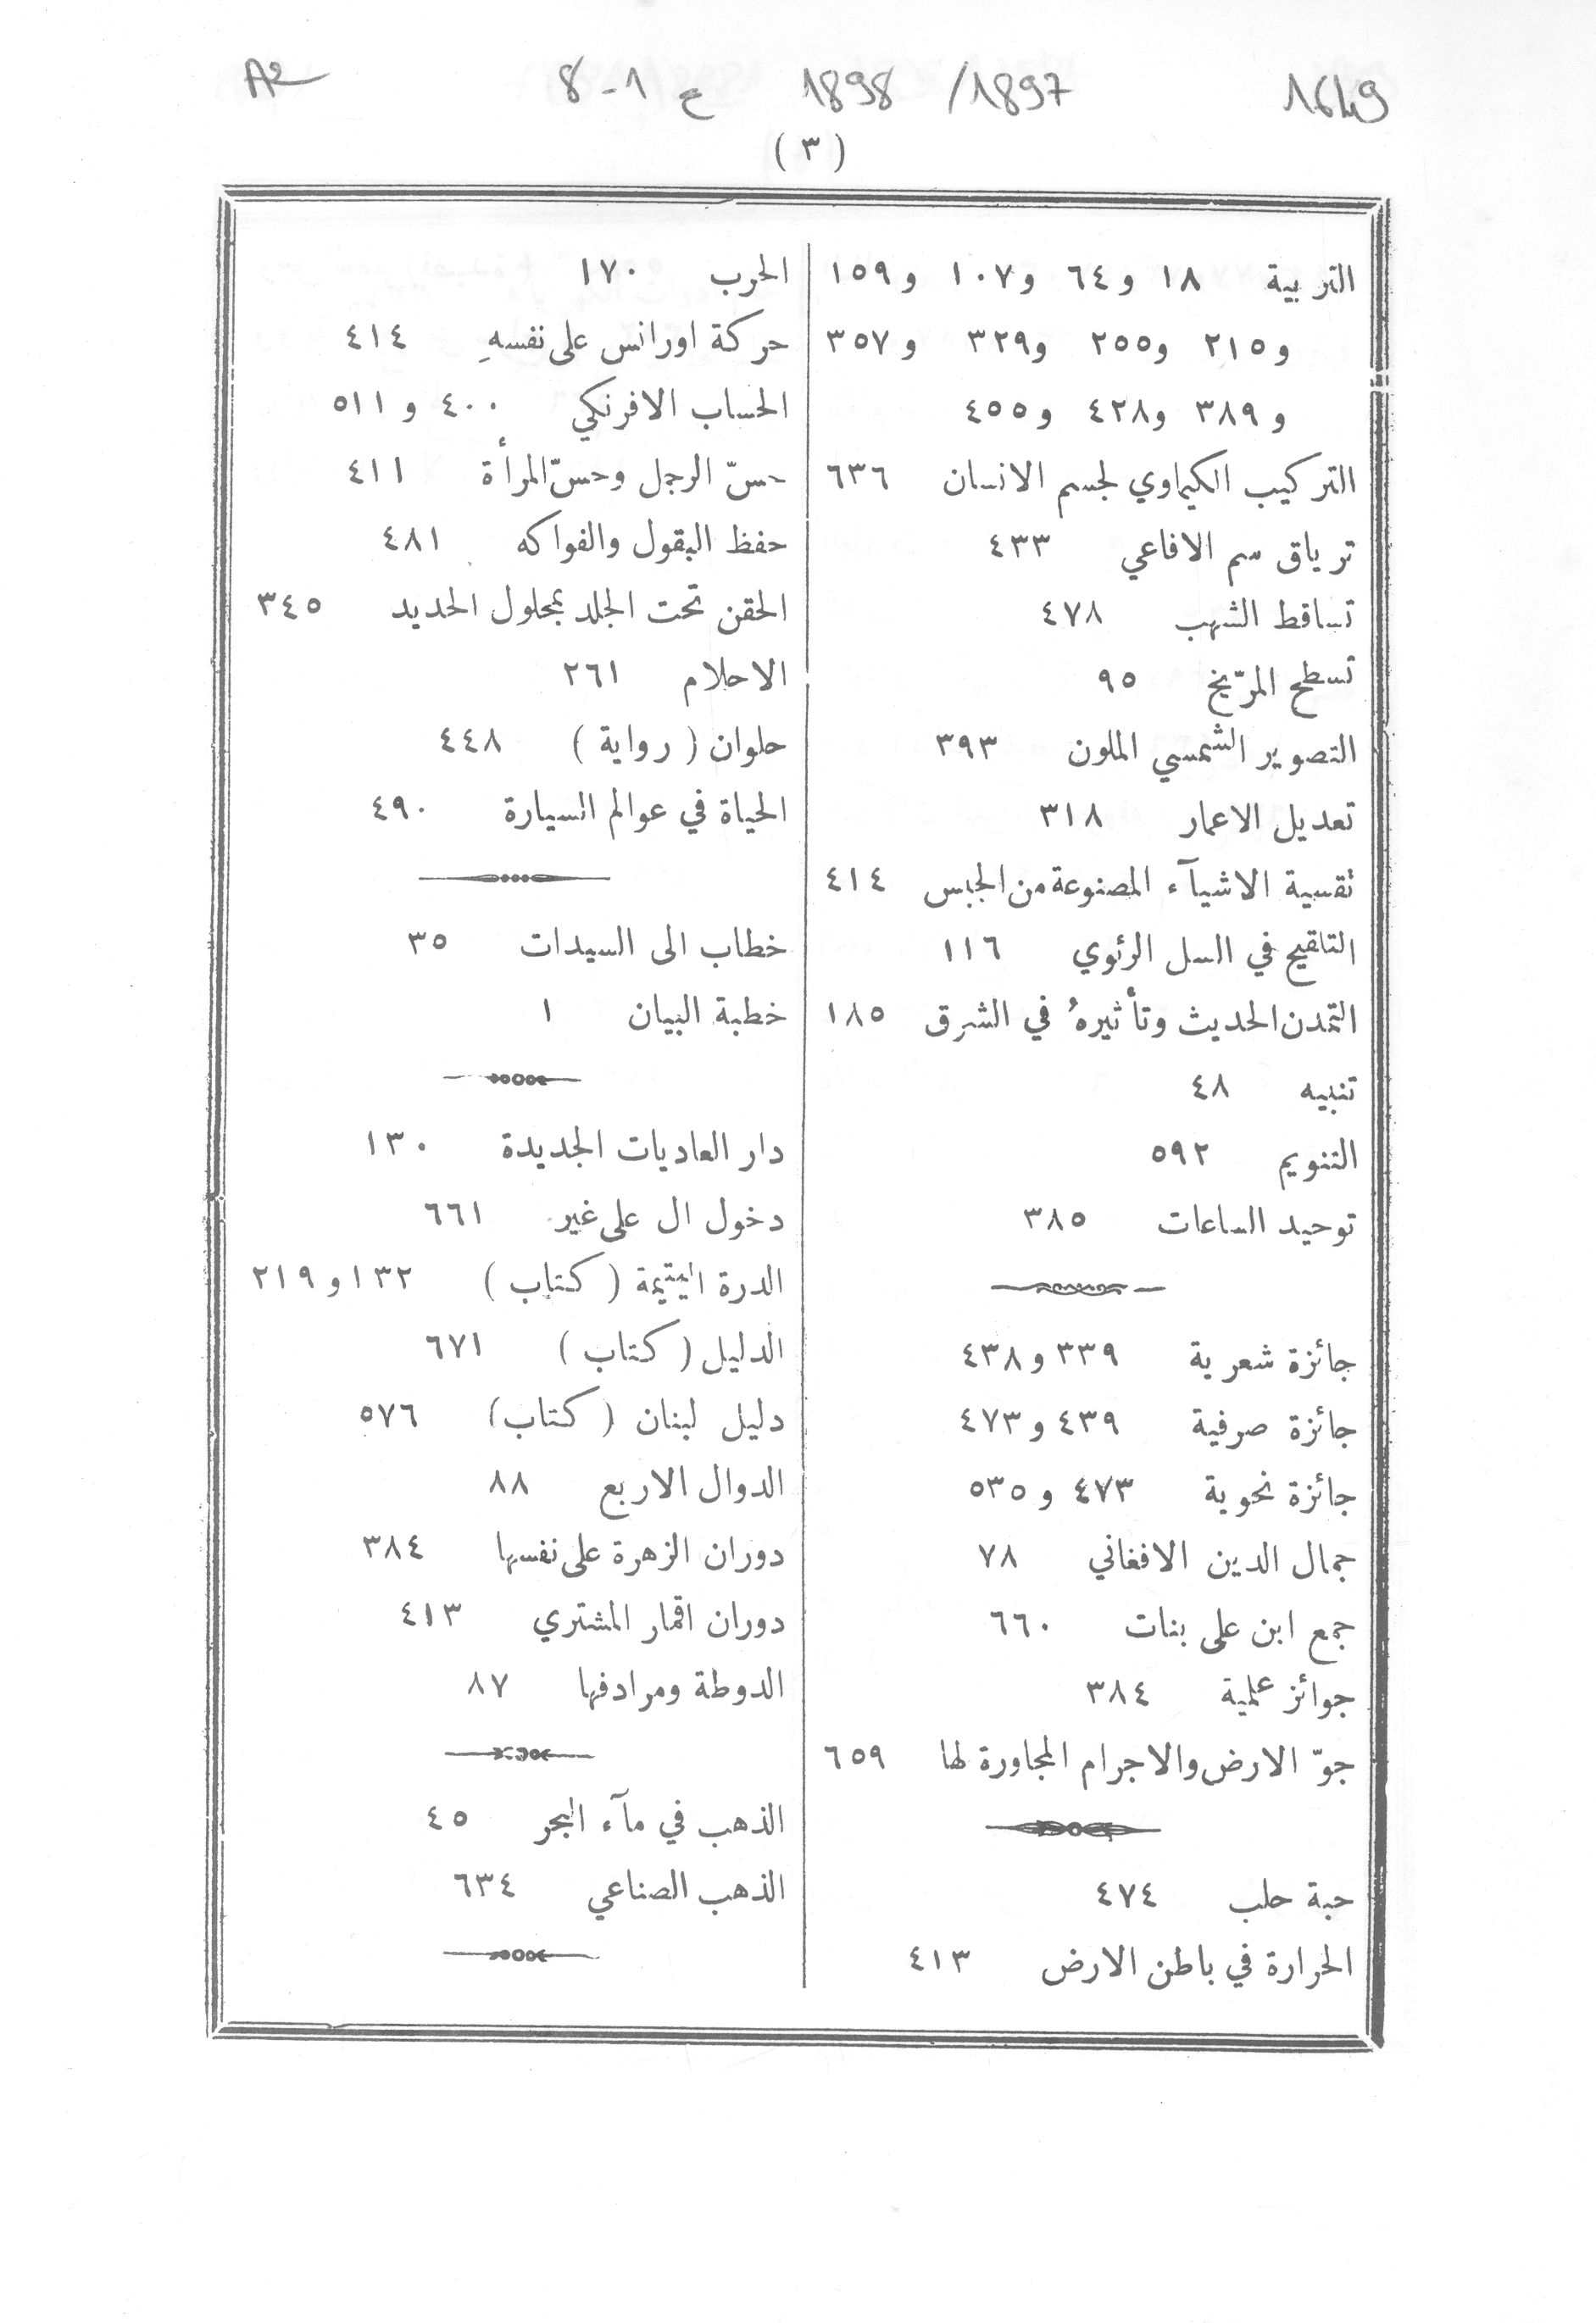 1649 1897/ 1898 ع 1-8 A2
( ٣ )
التربية ١٨ و٦٤ و١٠٧ و١٥٩
و٢١٥ و٢٥٥ و٣٢٩ و٣٥٧
و٣٨٩ و٤٢٨ و٤٥٥
التركيب الكيماوي لجسم الانسان ٦٣٦
ترياق سم الافاعي ٤٣٣
تساقط الشهب ٤٧٨
تسطح المرّيخ ٩٥
التصوير الشمسي الملون ٣٩٣
تعديل الاعمار ٣١٨
تقسية الاشيآء المصنوعة من الجبس ٤١٤
التلقيح في السل الرئوي ١١٦
التمدن الحديث وتأثيرهُ في الشرق ١٨٥
تنبيه ٤٨
التنويم ٥٩٢
توحيد الساعات ٣٨٥
جائزة شعرية ٣٣٩ و٤٣٨
جائزة صرفية ٤٣٩ و٤٧٣
جائزة نحوية ٤٧٣ و٥٣٥
جمال الدين الافغاني ٧٨
جمع ابن على بنات ٦٦٠
جوائز علمية ٣٨٤
جوّ الارض والاجرام المجاورة لها ٦٥٩
حبة حلب ٤٧٤
الحرارة في باطن الارض ٤١٣
الحرب ١٧٠
حركة اورانس على نفسهِ ٤١٤
الحساب الافرنكي ٤٠٠ و٥١١
حسّ الرجل وحسّ المرأة ٤١١
حفظ البقول والفواكه ٤٨١
الحقن تحت الجلد بمحلول الحديد ٣٤٥
الاحلام ٢٦١
حلوان ( رواية ) ٤٤٨
الحياة في عوالم السيارة ٤٩٠
خطاب الى السيدات ٣٥
خطبة البيان ١
دار العاديات الجديدة ١٣٠
دخول ال على غير ٦٦١
الدرة اليتيمة ( كتاب ) ١٣٢ و٢١٩
الدليل ( كتاب ) ٦٧١
دليل لبنان ( كتاب ) ٥٧٦
الدوال الاربع ٨٨
دوران الزهرة على نفسها ٣٨٤
دوران اقمار المشتري ٤١٣
الدوطة ومرادفها ٨٧
الذهب في مآء البحر ٤٥
الذهب الصناعي ٦٣٤